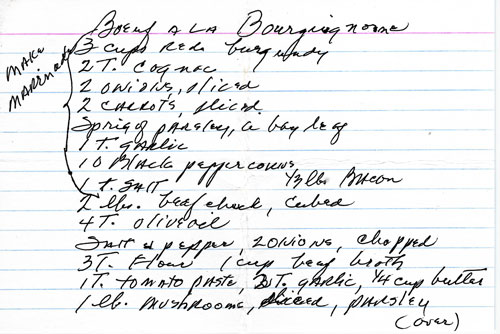 Boeuf A LA Bourguignonne
MAKE MARINADE
3 cups Red burgundy
2 T. Cognac
2 onions, sliced
2 carrots, sliced
Sprig of parsley, a bay leaf
1 T. garlic
10 Black peppercorns
1 t. salt 1/3 lb. Bacon
2 lbs. beef chuck, cubed
4 T. olive oil
Salt & pepper, 2 onions, chopped
3 T. Flour 1 cup beef broth
1 T. tomato paste, 2 T. garlic, 1/4 cup butter
1 lb. mushrooms, sliced, parsley
(over)